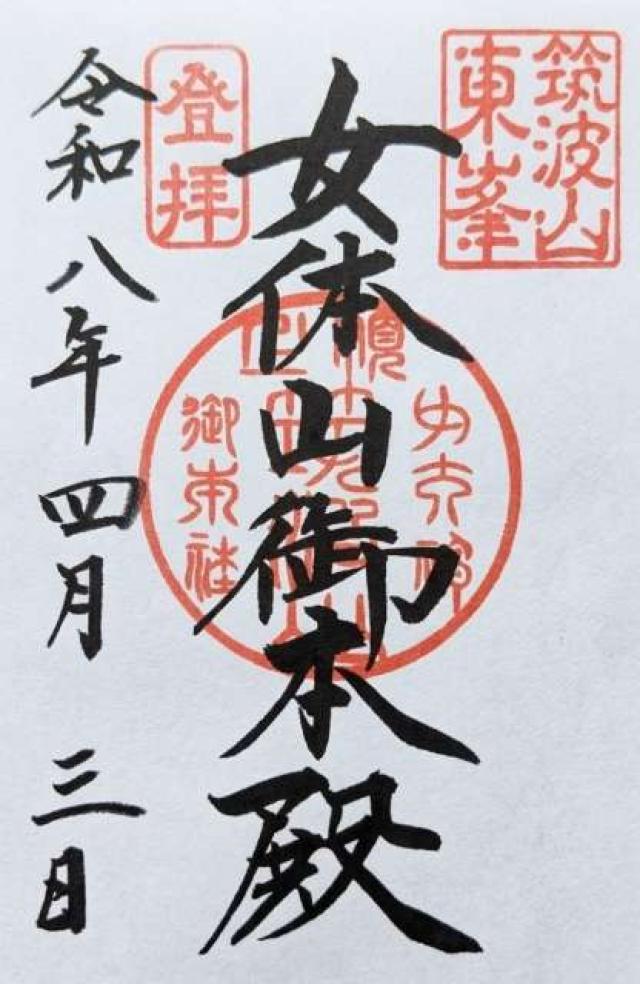 筑波山
東峯
女体山御本殿
登拝
令和八年四月三日
御本社